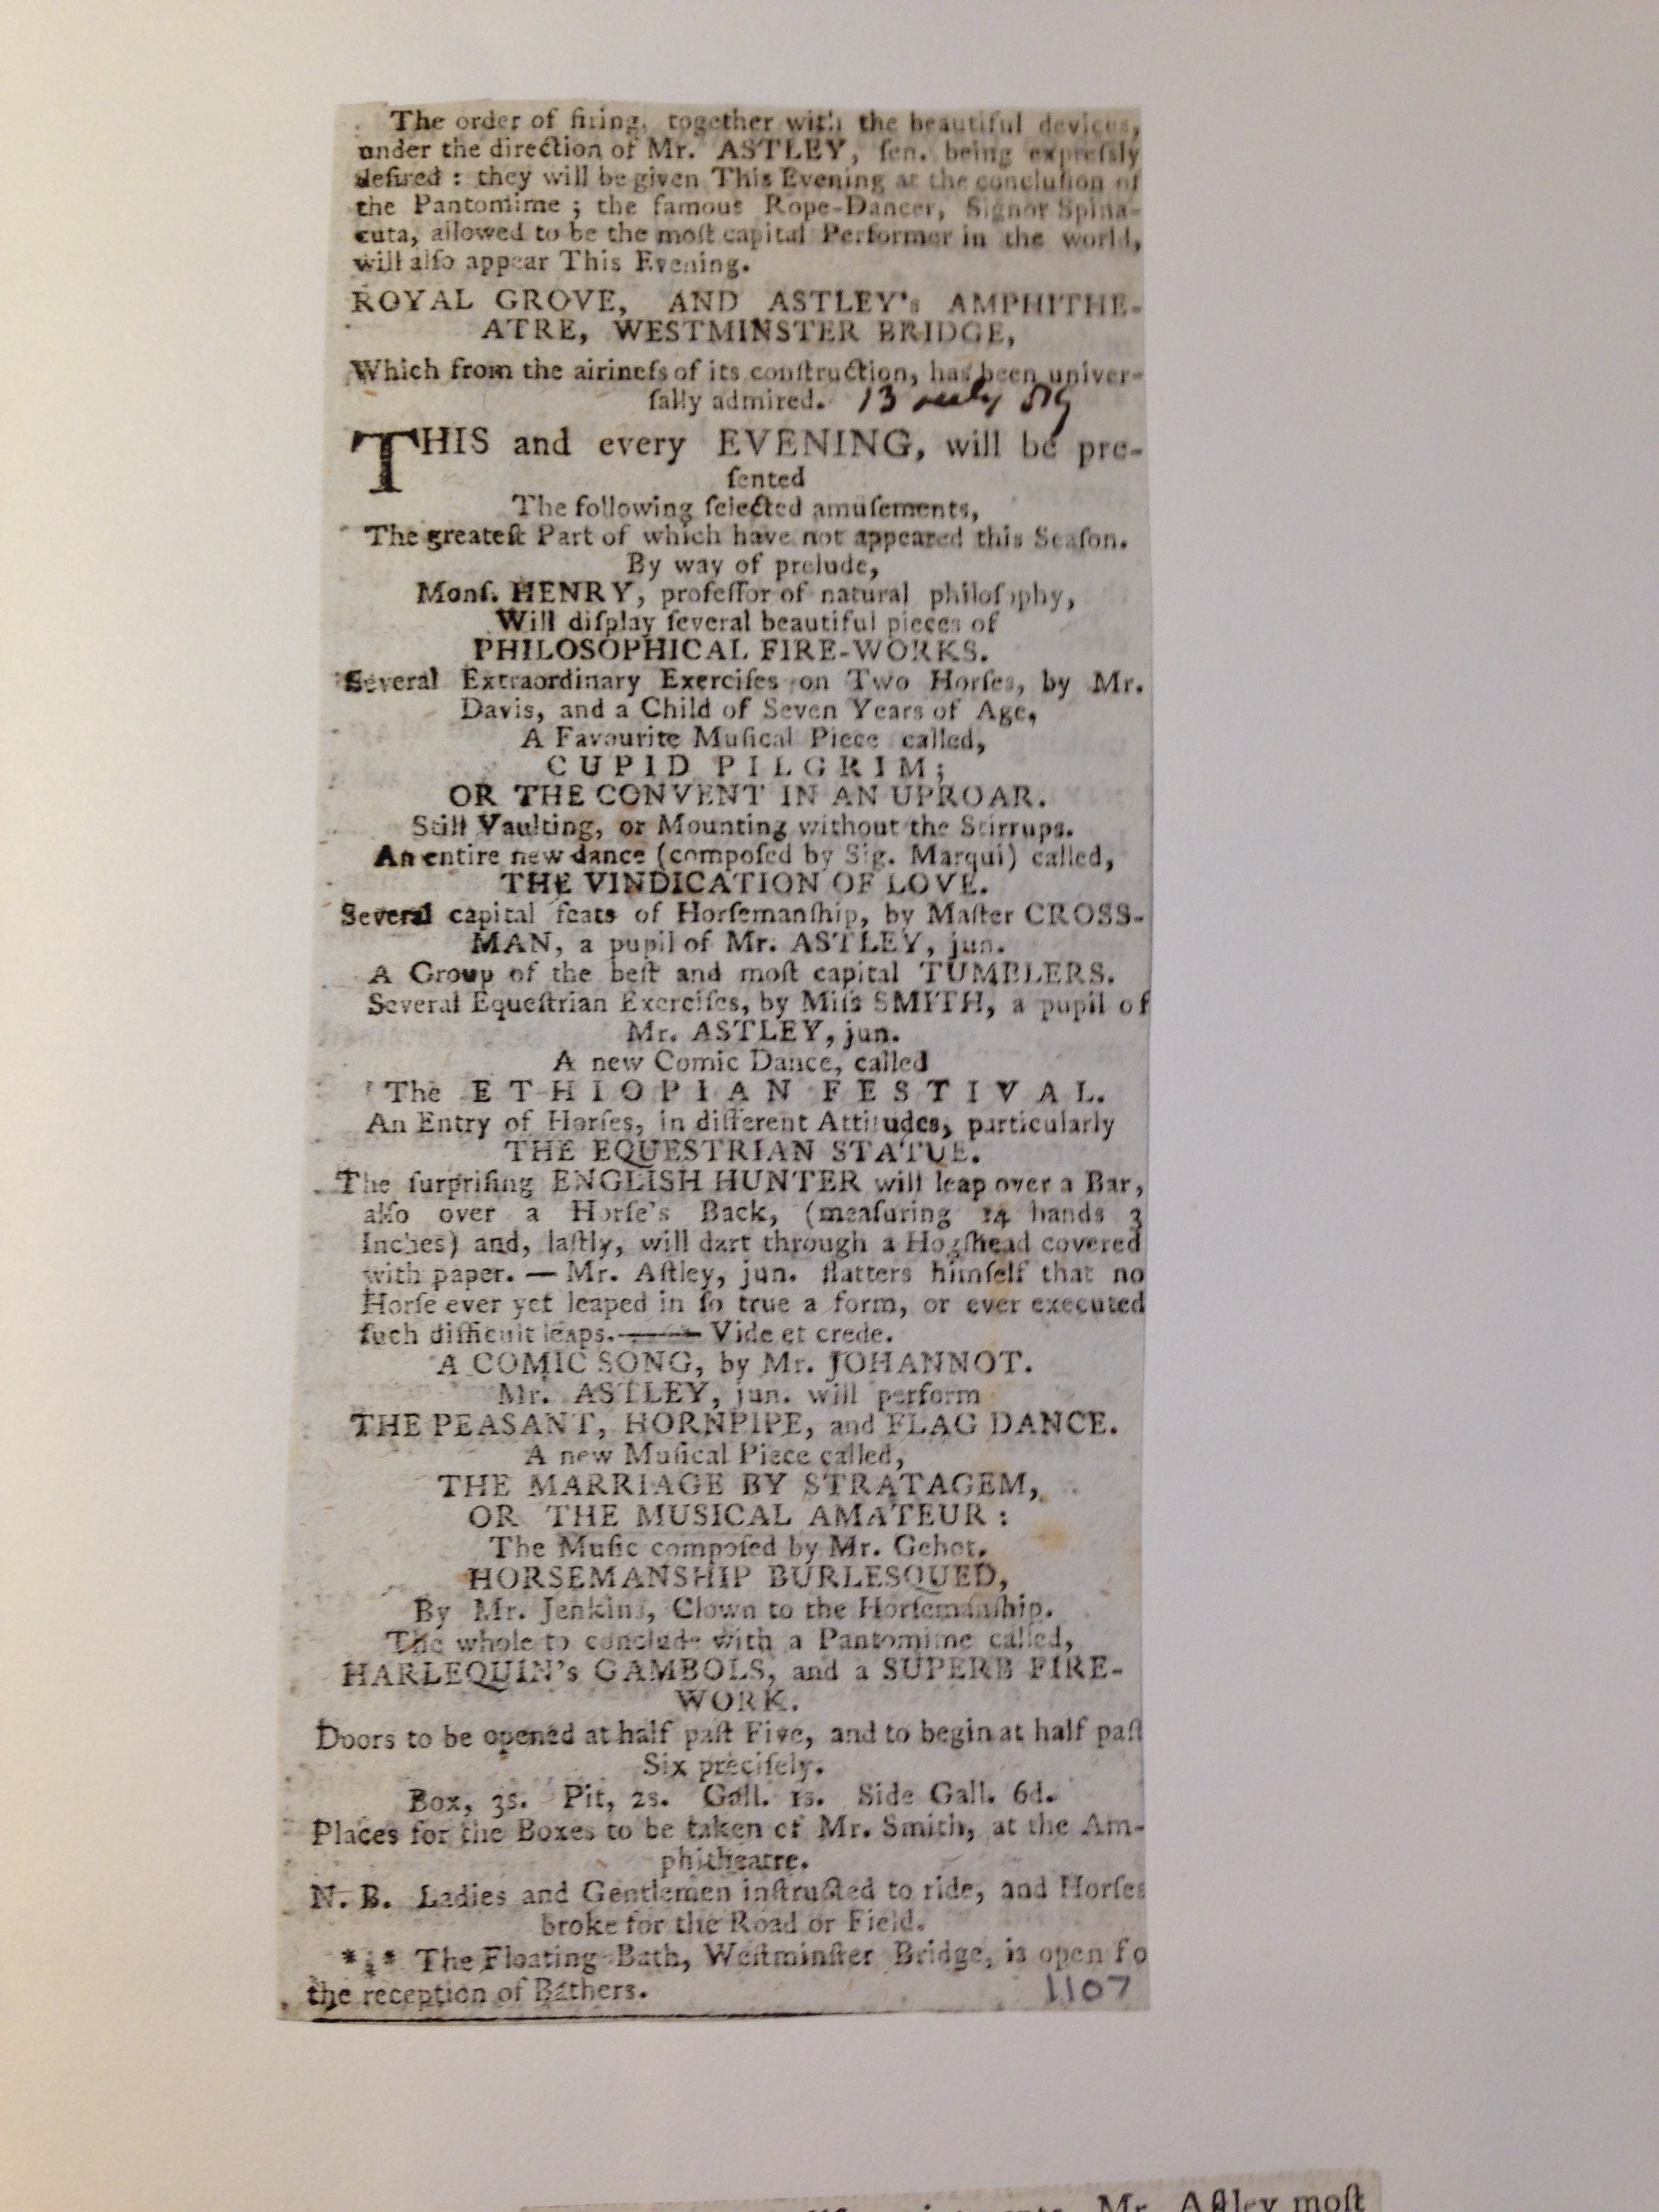 The order of firing, together with the beautiful devices,
under the direction of Mr. ASTLEY, ſen. being expreſsly
deſired : they will be given This Evening at the concluſion of
the Pantomime ; the famous Rope-Dancer, Signor Spina-
cuta, allowed to be the moſt capital Performer in the world,
will alſo appear This Evening.
ROYAL GROVE, AND ASTLEY's AMPHITHE-
ATRE, WESTMINSTER BRIDGE,
Which from the airineſs of its conſtruction, has been univer-
ſally admired. 13 July
THIS and every EVENING, will be pre-
ſented
The following ſelected amuſements,
The greateſt Part of which have not appeared this Seaſon.
By way of prelude,
Monſ. HENRY, profeſſor of natural philoſophy,
Will diſplay ſeveral beautiful pieces of
PHILOSOPHICAL FIRE-WORKS.
Several Extraordinary Exerciſes on Two Horſes, by Mr.
Davis, and a Child of Seven Years of Age,
A Favourite Muſical Piece called,
CUPID PILGRIM;
OR THE CONVENT IN AN UPROAR.
Still Vaulting, or Mounting without the Stirrups.
An entire new dance (compoſed by Sig. Marqui) called,
THE VINDICATION OF LOVE.
Several capital feats of Horſemanſhip, by Maſter CROSS-
MAN, a pupil of Mr. ASTLEY, jun.
A Group of the beſt and moſt capital TUMBLERS.
Several Equeſtrian Exerciſes, by Miſs SMITH, a pupil of
Mr. ASTLEY, jun.
A new Comic Dance, called
The ETHIOPIAN FESTIVAL.
An Entry of Horſes, in different Attitudes, particularly
THE EQUESTRIAN STATUE.
The ſurpriſing ENGLISH HUNTER will leap over a Bar,
alſo over a Horſe's Back, (meaſuring 14 hands 3
Inches) and, laſtly, will dart through a Hogſhead covered
with paper. — Mr. Aſtley, jun. flatters himſelf that no
Horſe ever yet leaped in ſo true a form, or ever executed
ſuch difficult leaps.——— Vide et crede.
A COMIC SONG, by Mr. JOHANNOT.
Mr. ASTLEY, jun. will perform
THE PEASANT, HORNPIPE, and FLAG DANCE.
A new Muſical Piece called,
THE MARRIAGE BY STRATAGEM,
OR THE MUSICAL AMATEUR :
The Muſic compoſed by Mr. Gehot.
HORSEMANSHIP BURLESQUED,
By Mr. Jenkins, Clown to the Horſemanſhip.
The whole to conclude with a Pantomime called,
HARLEQUIN's GAMBOLS, and a SUPERB FIRE-
WORK.
Doors to be opened at half paſt Five, and to begin at half paſt
Six preciſely.
Box, 3s. Pit, 2s. Gall. 1s. Side Gall. 6d.
Places for the Boxes to be taken of Mr. Smith, at the Am-
phitheatre.
N. B. Ladies and Gentlemen inſtructed to ride, and Horſes
broke for the Road or Field.
*⁎* The Floating Bath, Weſtminſter Bridge, is open fo
the reception of Bathers.
1107
Mr. Aſtley moſt